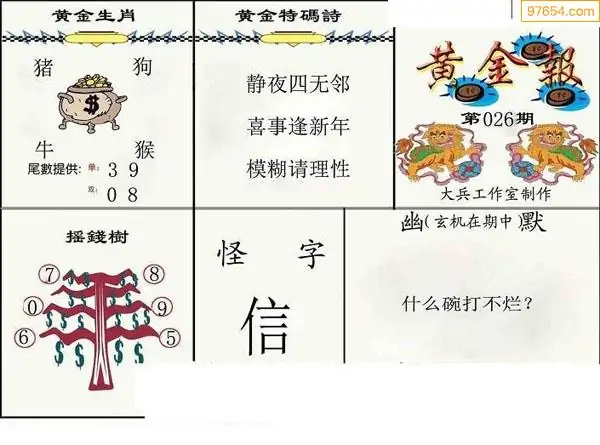 97654.com
黄金生肖
猪 狗
$
牛 猴
尾數提供: 单: 3 9
双: 0 8
黄金特碼詩
静夜四无邻
喜事逢新年
模糊请理性
黄金報
第026期
大兵工作室制作
摇錢樹
7 8
0 9
6 5
$ $ $ $ $ $ $ $ $ $
怪 字
信
幽(玄机在期中)默
什么碗打不烂?